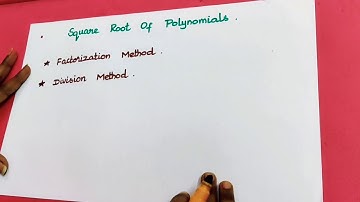 Square Root Of Polynomials.
★ Factorization Method.
★ Division Method.